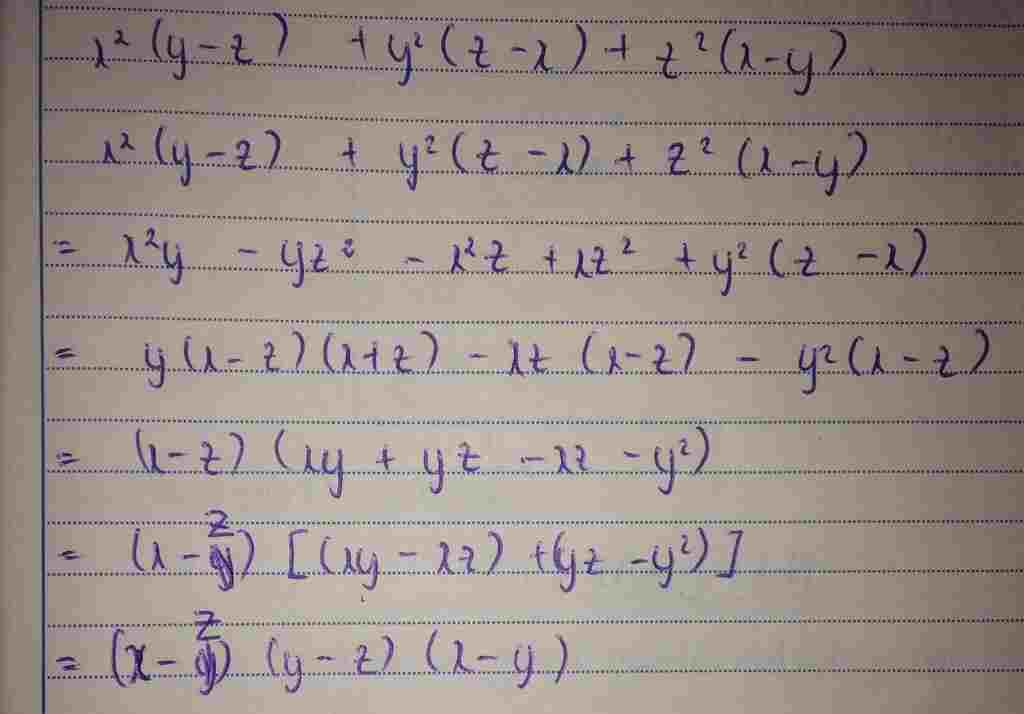 x² (y - z) + y² (z - x) + z² (x - y)
x² (y - z) + y² (z - x) + z² (x - y)
= x²y - yz² - x²z + xz² + y² (z - x)
= y (x - z) (x + z) - xz (x - z) - y² (x - z)
= (x - z) (xy + yz - xz - y²)
= (x - z) [(xy - xz) + (yz - y²)]
= (x - z) (y - z) (x - y)